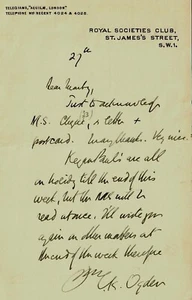 TELEGRAMS, "AEVILM, LONDON"
TELEPHONE NO REGENT 4024 & 4025.
ROYAL SOCIETIES CLUB,
ST. JAMES'S STREET,
S.W.1.
27th
Just to acknowledge
M.S. letter +
postcard. Many thanks. V. nice.
Kegan Pauls are all
in holiday till the end of this
week, but the will be
read at once. I'll write you
again on other matters at
the end of the week therefore
C.K. Ogden